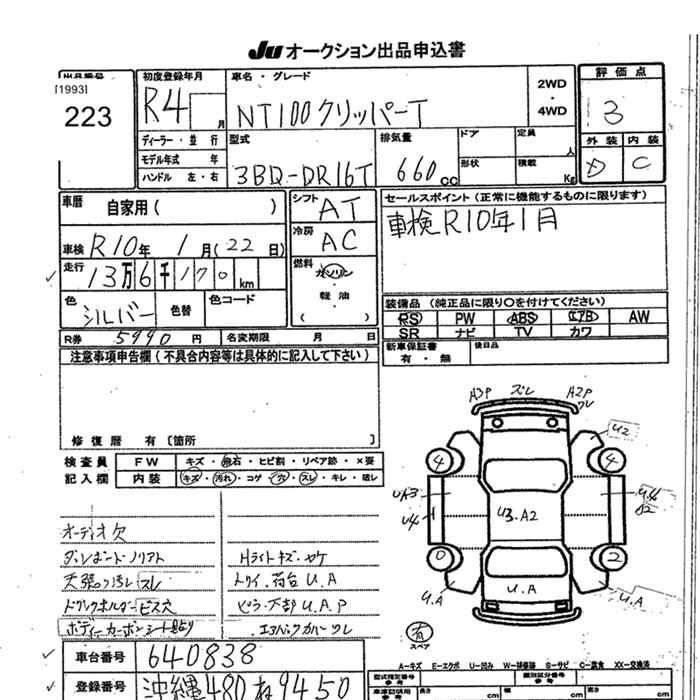 Ju オークション出品申込書
出品番号
[1993]
223
初度登録年月
R4 月
車名・グレード
NT100クリッパーT
2WD
・
4WD
評価点
3
外装 内装
D C
ディーラー・並行
モデル年式 年
ハンドル 左・右
型式
3BD-DR16T
排気量
660cc
ドア
形状
定員
人
積載
Kg
車歴
自家用( )
シフト
AT
冷房
AC
燃料
ガソリン
・
軽油
( )
車検 R10年 1月(22日)
走行
13万6千170km
色
シルバー
色替
色コード
R券 5990円 名変期限 月 日
セールスポイント(正常に機能するものに限ります)
車検R10年1月
装備品(純正品に限り○を付けてください)
PS PW ABS エアB AW
SR ナビ TV カワ
新車保証書
有・無
後日品
注意事項申告欄(不具合内容等は具体的に記入して下さい)
修復歴 有〔箇所 〕
検査員
記入欄
FW キズ・飛石・ヒビ割・リペア跡・×要
内装 キズ・汚れ・コゲ・穴・スレ・キレ・破レ
オーディオ欠
ダッシュボードノリアト
天張り汚レスレ
ドリンクホルダービス穴
ボディーカーボンシート貼り
Hライトキズ・ヤケ
トリイ、荷台U.A
ピラー下部U.A.P
エアバックカバーワレ
A3P ズレ A2P
ワレ
U2
4 4
UA3
U4
U3.A2
U4
0 2
U.A U.A U.A
有
スペア
車台番号 640838
登録番号 沖縄480ね9450
A-キズ E-エクボ U-凹み W-補修跡 S-サビ C-腐食 XX-交換済
型式指定番号
参考
類別区分番号
参考
車庫証明用
参考
長さ cm
幅 cm
高さ cm